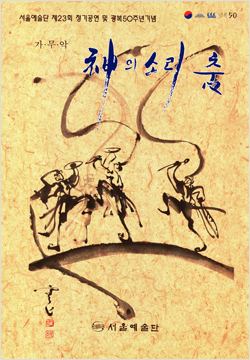 서울예술단 제23회 정기공연 및 광복50주년기념
50
가·무·악
神의 소리
서울예술단